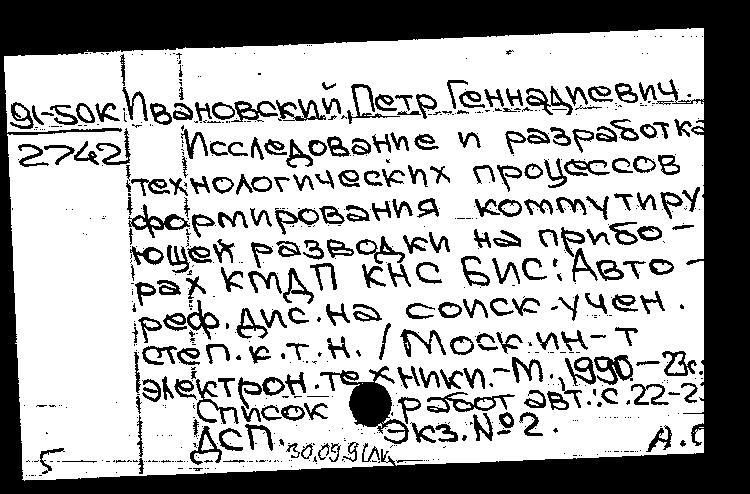 91-50К Ивановский, Петр Геннадиевич.
2742 Исследование и разработка
технологических процессов
формирования коммутиру-
ющей разводки на прибо-
рах КМДП КНС БИС: Авто-
реф. дис. на соиск. учен.
степ. к. т. н. / Моск. ин-т
электрон. техники. - М., 1990 - 23с.
Список работ авт.: с. 22-23
ДСП. Экз. №2.
5 30.09.91 А.С